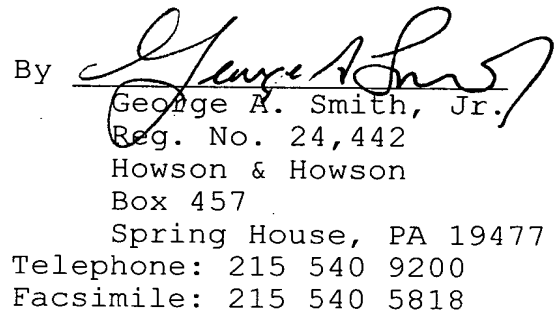 By George A Smith
George A. Smith, Jr.
Reg. No. 24,442
Howson & Howson
Box 457
Spring House, PA 19477
Telephone: 215 540 9200
Facsimile: 215 540 5818